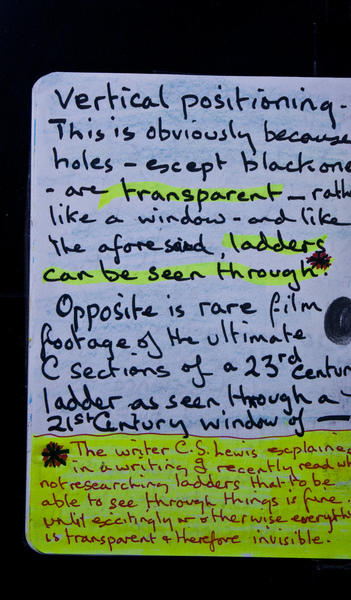 Vertical positioning -
This is obviously because
holes - except black one
- are transparent - rath
like a window - and like
the aforesaid, ladders
can be seen through.
Opposite is rare film
footage of the ultimate
C sections of a 23rd Centur
ladder as seen through a
21st Century window of
The writer C.S. Lewis explaine
in a writing I recently read wh
not researching ladders that to be
able to see through things is fine
until excitingly or otherwise everythi
is transparent & therefore invisible.